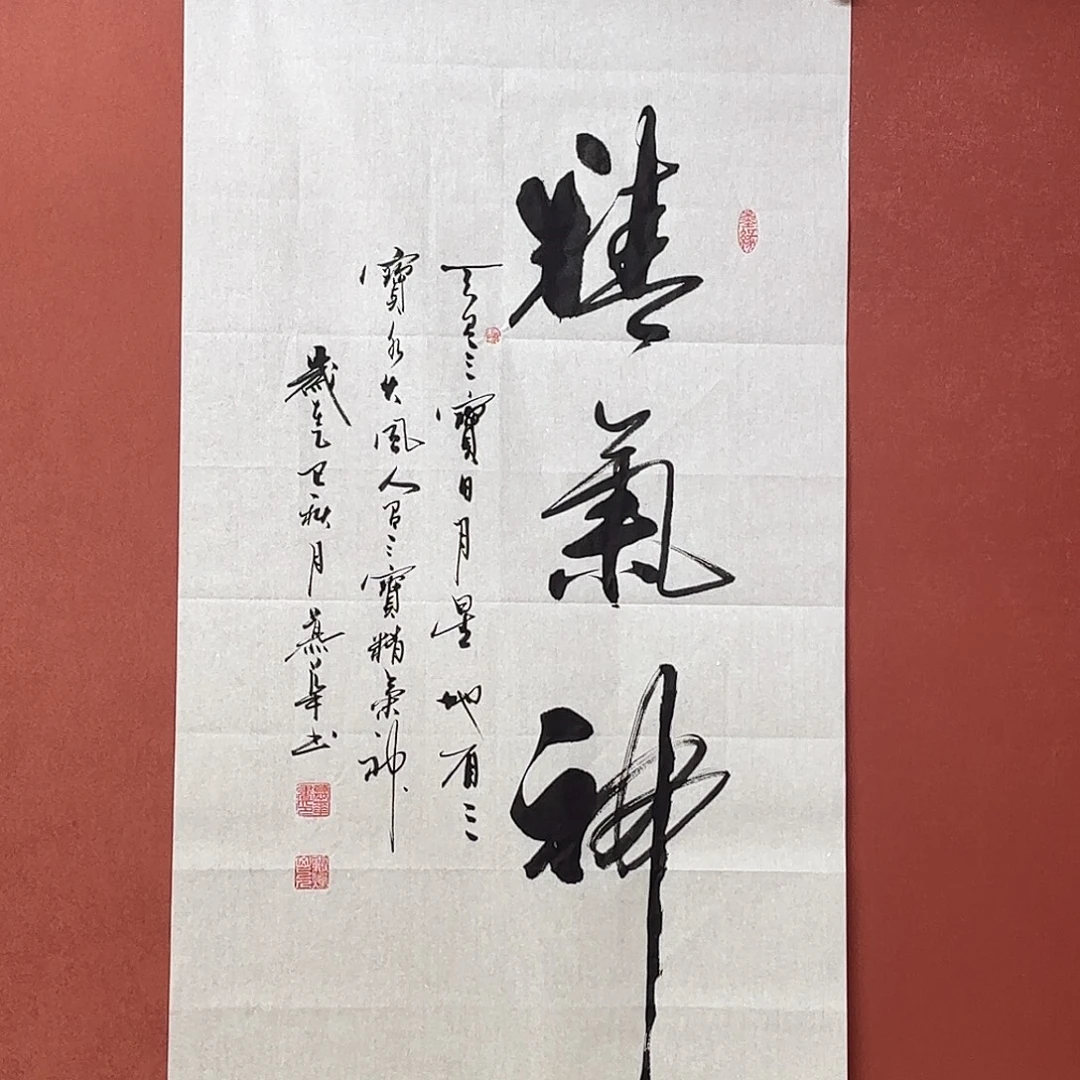 精氣神
天有三寶日月星地有三
寶水火風人有三寶精氣神
歲在乙巳秋月燕華书